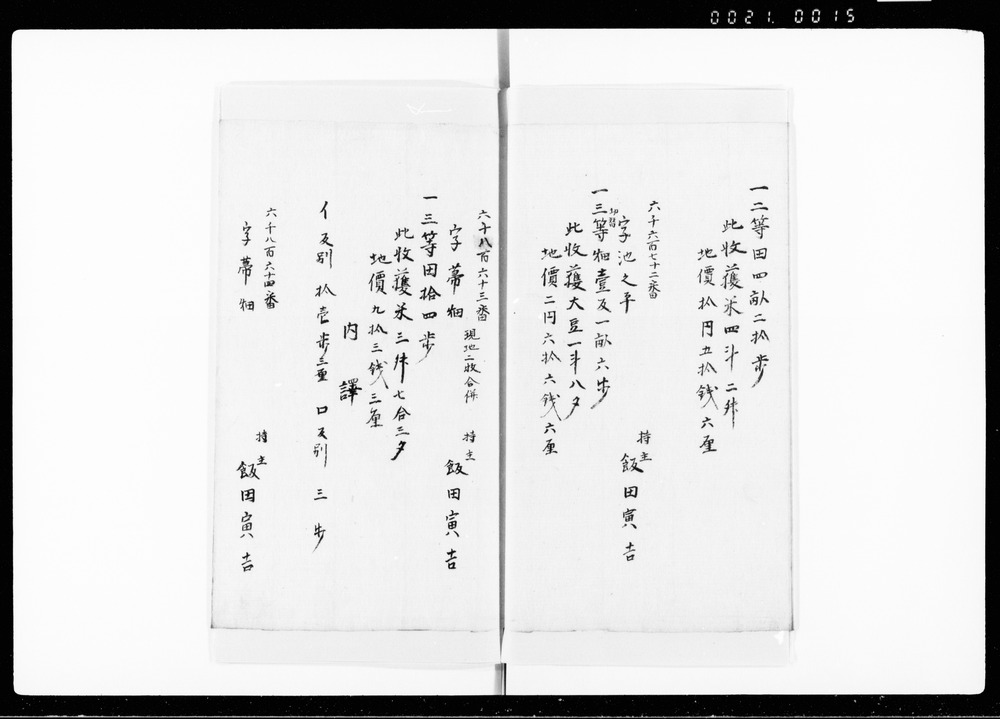 0021.0015
一二等田四畝二拾歩
此收蘐米四斗二升
地價拾円五拾錢六厘
六千六百七十二番
字池之平
持主
飯田寅吉
一三等畑壹反一畝六歩
切替
此收蘐大豆一斗八夕
地價二円六拾六錢六厘
六千八百六十三番
現地二枚合併
字蕃畑
持主
飯田寅吉
一三等田拾四歩
此收蘐米三升七合三夕
地價九拾三錢三厘
内譯
イ反別 拾壱歩三厘 口反別 三歩
六千八百六十四番
字蕃畑
持主
飯田寅吉